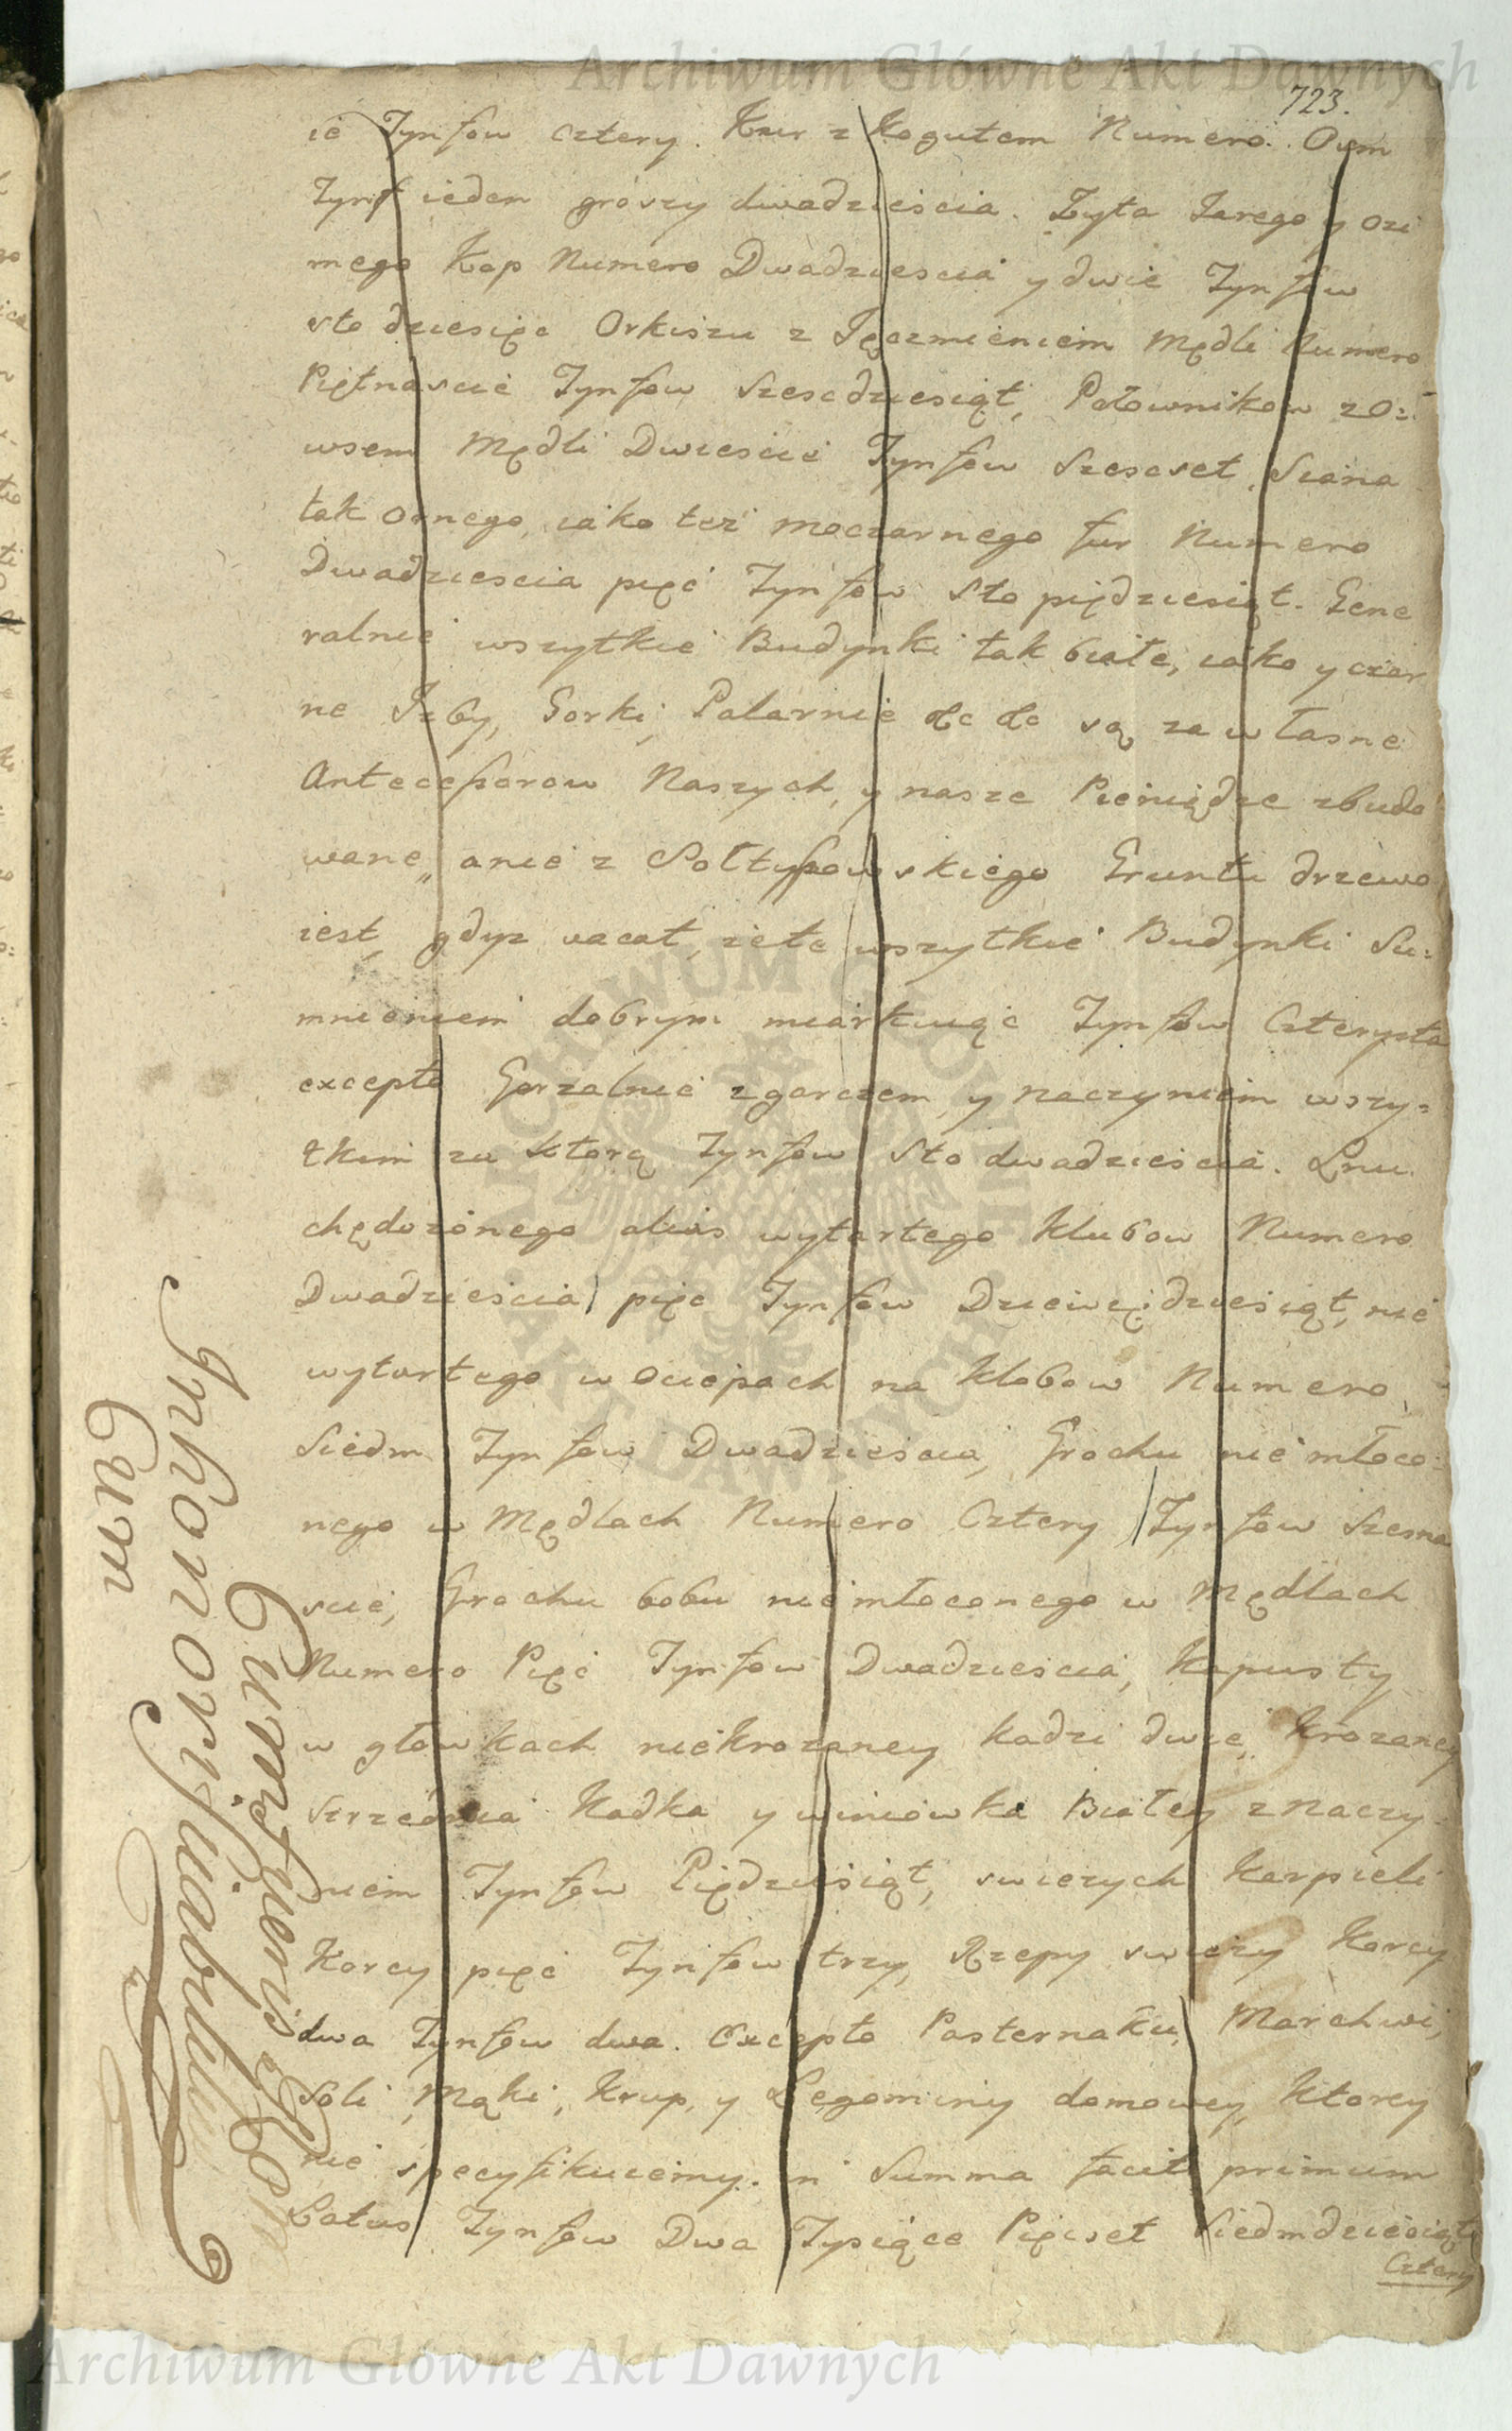 Archiwum Główne Akt Dawnych
723.
ie Tynfow cztery. Kur z Kogutem Numero. Ośm
Tynf ieden groszy dwadziescia. Zyta Jarego y ozi
mego Kop Numero Dwadziescia y dwie Tynfow
sto dziesięc Orkiszu z Jęczmieniem Mędli Numero
Piętnascie Tynfow Szescdziesiąt, Połownikow zo:
wsem Mędli Dwiescie Tynfow Szescset, Siana
tak ornego, iako też moczarnego fur Numero
Dwadziescia pięć Tynfow sto pięдziesiąt. Gene
ralnie wszytkie Budynki tak białe, iako y czar
ne Izby, Gorki, Palarnie &c &c są za własne
Antecessorow Naszych, y nasze Pieniądze zbudo
wane, anie z Sołtysowskiego Gruntu drzewo
iest, gdyz vacat, zete wszytkie Budynki Su:
mnieniem dobrym miarkuiąc Tynfow Czterysta
excepto Gorzalnie zgarczem, y naczyniem wszy:
tkim za ktorą Tynfow Sto dwadziescia. Lnu
chędozonego alias wytartego Klubow Numero
Dwadziescia pięc Tynfow Dziewięcdziesiąt, nie
wytartego w ociepach na Klobow Numero
Siedm Tynfow Dwadziescia, Grochu nie młoco:
nego w Mędlach Numero Cztery Tynfow Szesna
scie, Grochu bobu niemłoconego w Mędlach
Numero Pięć Tynfow Dwadziescia, Kapusty
w głowkach niekrozaney kadzi dwie, krozaney
Srzednia Kadka y winiowka Białey z naczy
niem Tynfow Pięдziesiąt, swiezych Karpieli
Korcy pięć Tynfow trzy, Rzepy swiezy Korcy
dwa Tynfow dwa. Excepto Pasternaku, Marchwi,
Soli, Mąki, Krup, y Legominy domowey, ktorey
nie specyfikuiemy. in Summa facit primum
Latus Tynfow Dwa Tysiące Pięcset Siedmdziesiąt
Cztery
Inhonorij
Cum
ARCHIWUM GŁÓWNE AKT DAWNYCH
Archiwum Główne Akt Dawnych